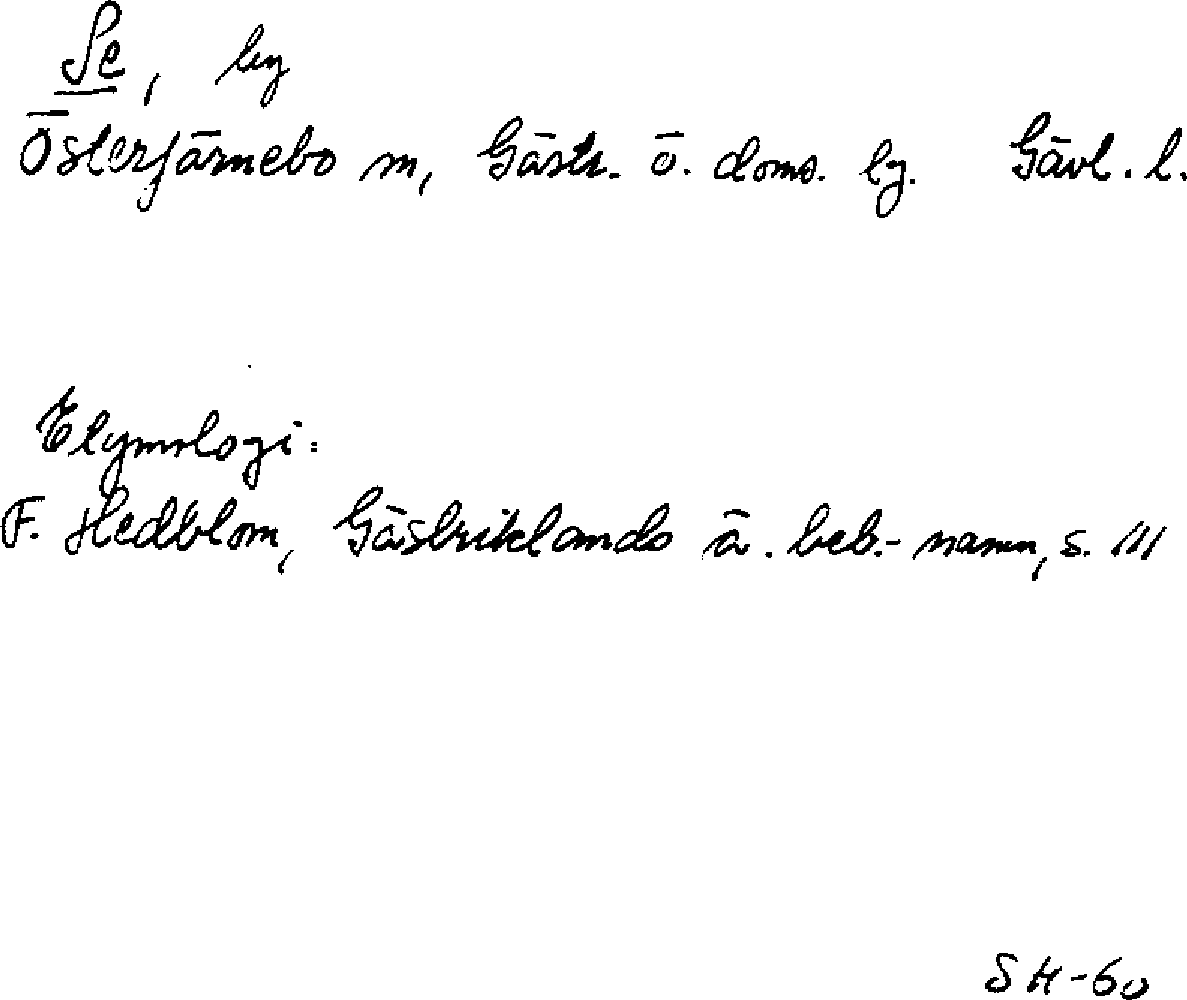 Se, by
Österfärnebo sn, Gästr. ö. doms. lg. Gävl. l.
Etymologi:
F. Hedblom, Gästriklands ä. beb.-namn, s. 111
SH-60